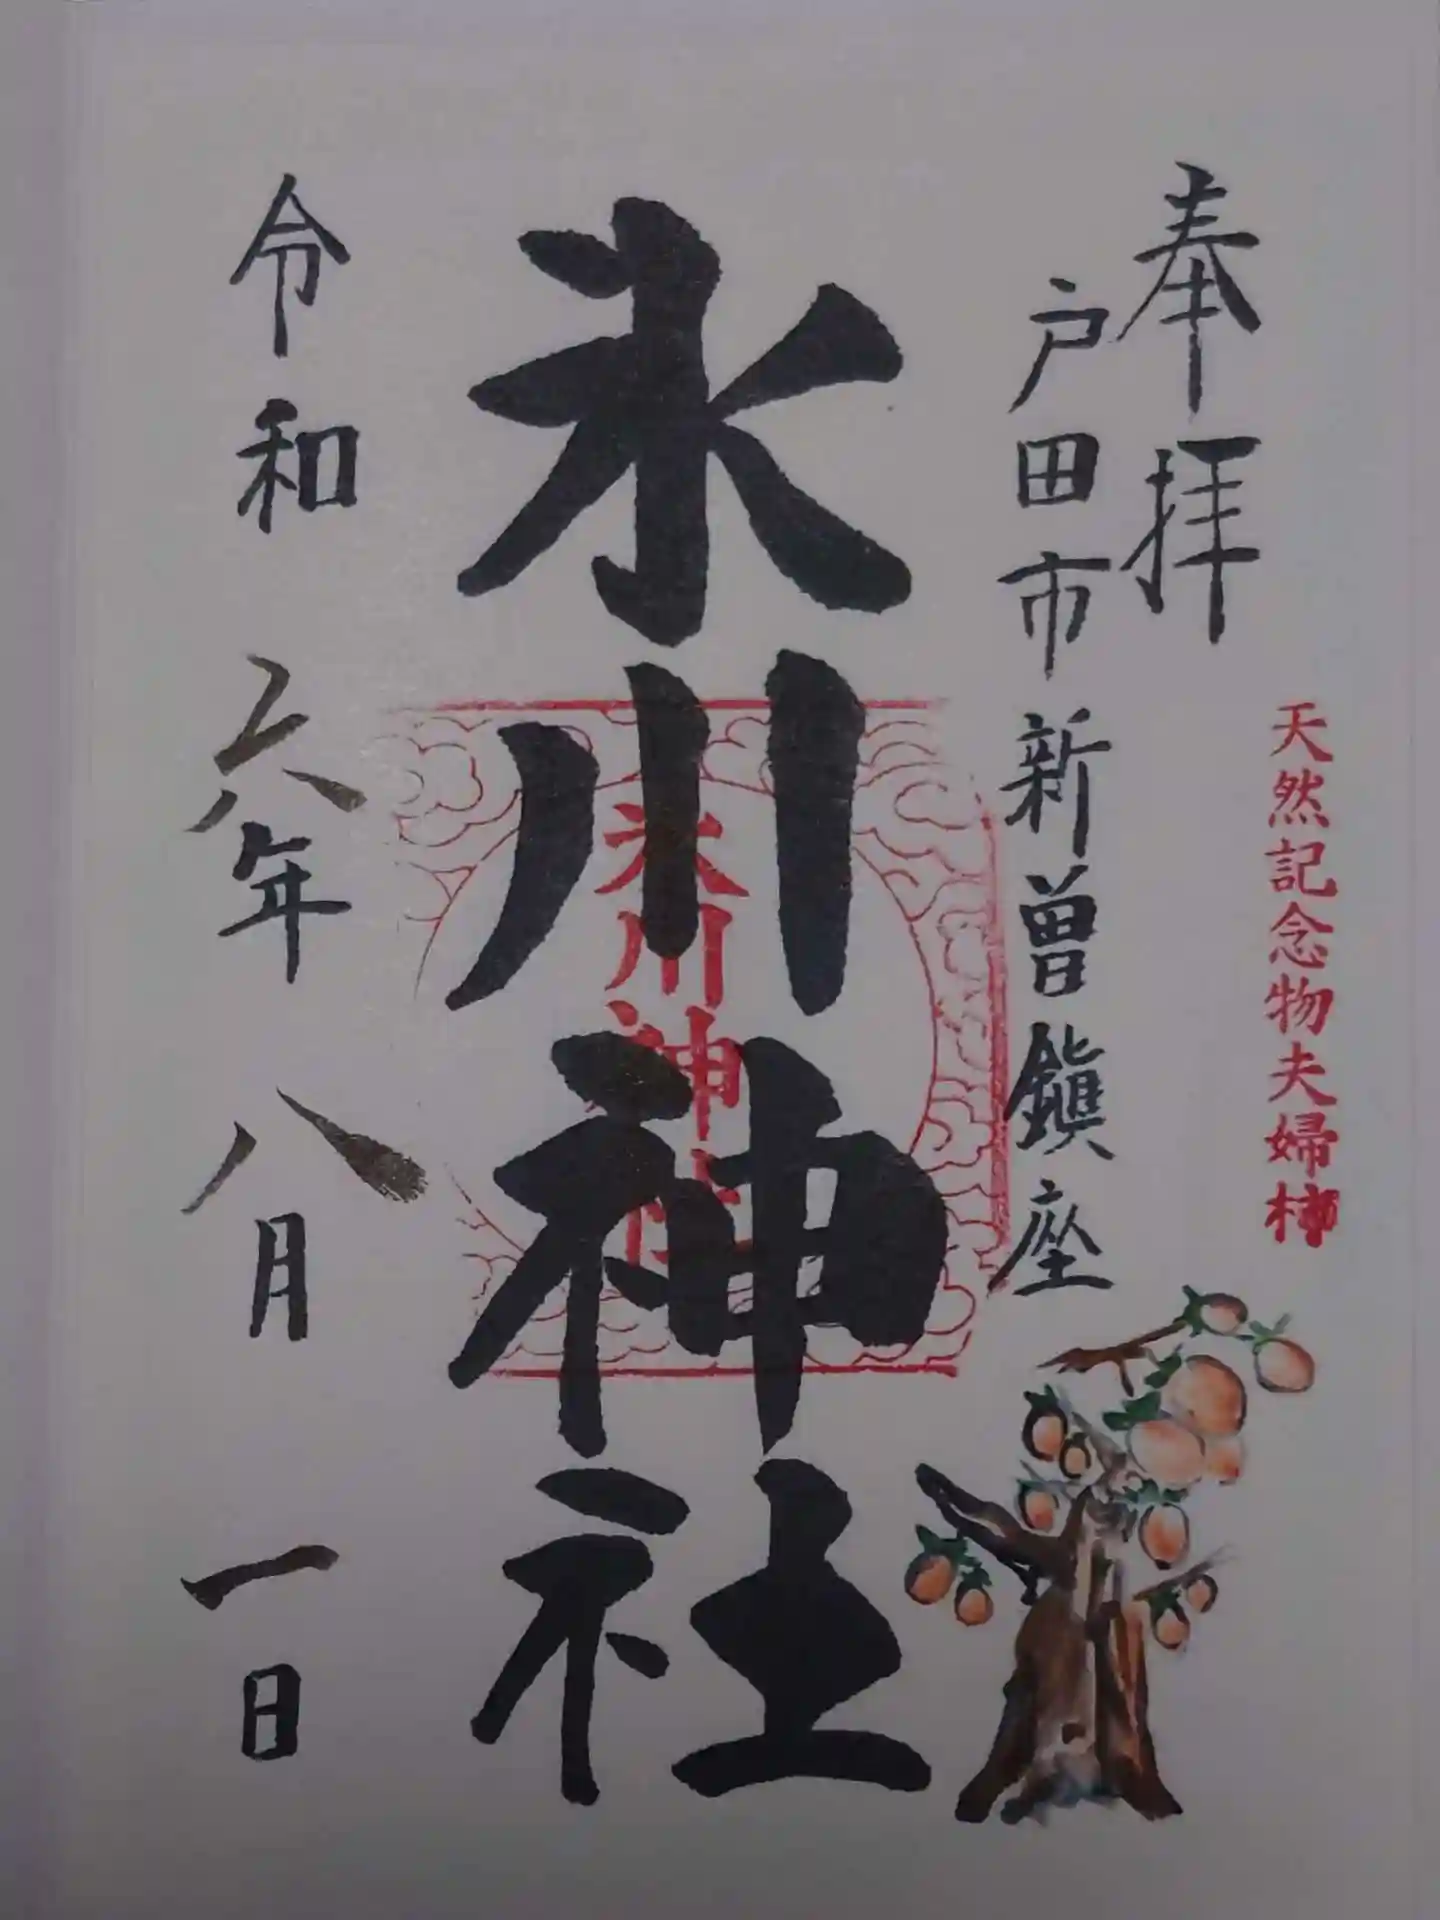 奉拝
天然記念物夫婦柿
戸田市新曽鎮座
氷川神社
氷川神社
令和六年八月一日